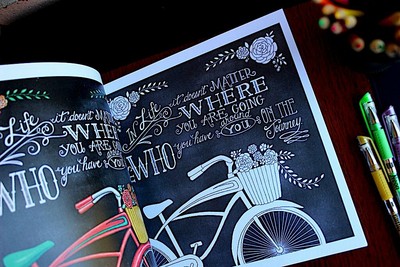 Life
it doesn't MATTER
WHERE
you ARE
WHO
you have
In Life
it doesn't MATTER
WHERE
YOU ARE GOING
WHO
you have
around
YOU
ON THE
Journey